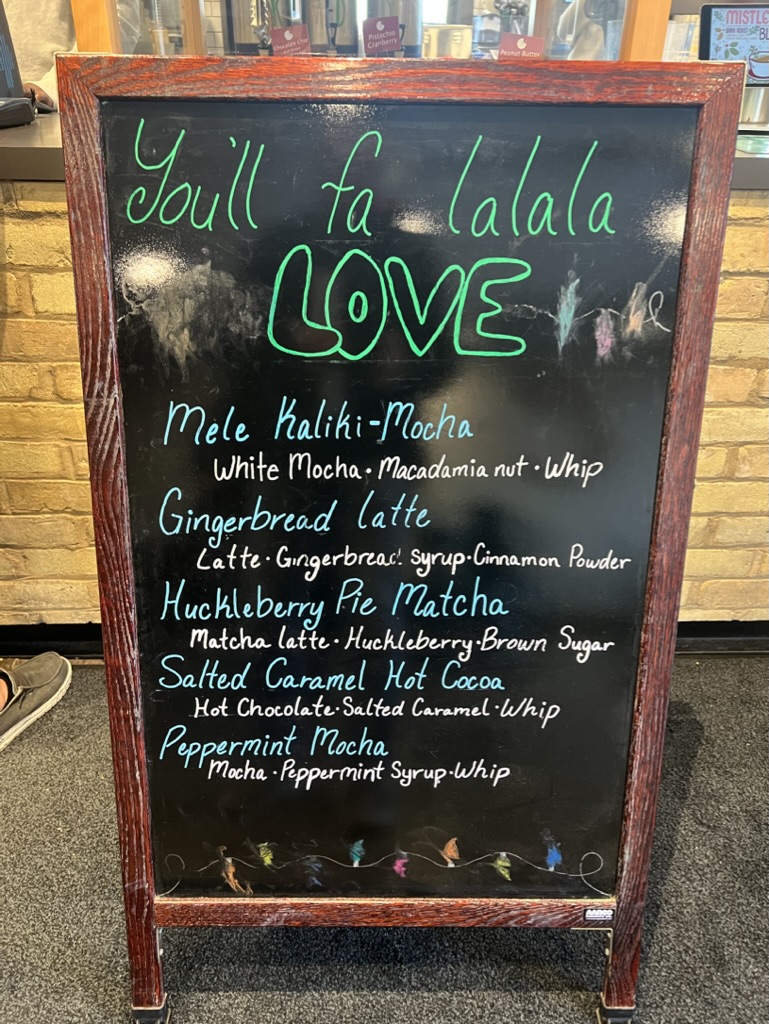 Chocolate Chip
Pistachio
Cranberry
Peanut Butter
MISTLE
You'll fa lalala
LOVE
Mele Kaliki-Mocha
White Mocha · Macadamia nut · Whip
Gingerbread latte
Latte · Gingerbread syrup · Cinnamon Powder
Huckleberry Pie Matcha
Matcha latte · Huckleberry · Brown Sugar
Salted Caramel Hot Cocoa
Hot Chocolate · Salted Caramel · Whip
Peppermint Mocha
Mocha · Peppermint Syrup · Whip